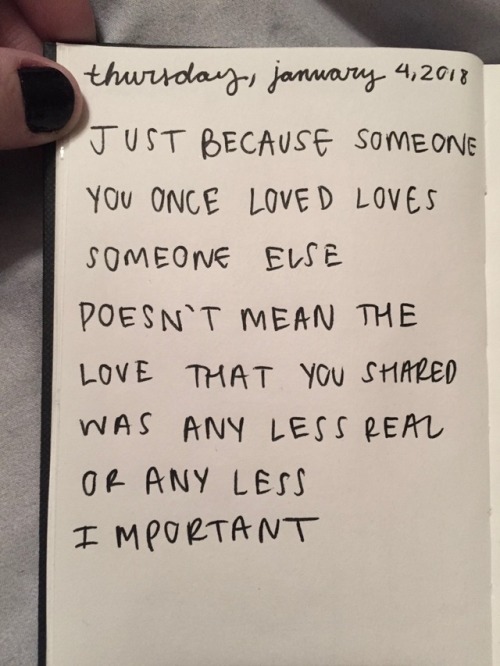 thursday, january 4, 2018
JUST BECAUSE SOMEONE
YOU ONCE LOVED LOVES
SOMEONE ELSE
DOESN'T MEAN THE
LOVE THAT YOU SHARED
WAS ANY LESS REAL
OR ANY LESS
IMPORTANT